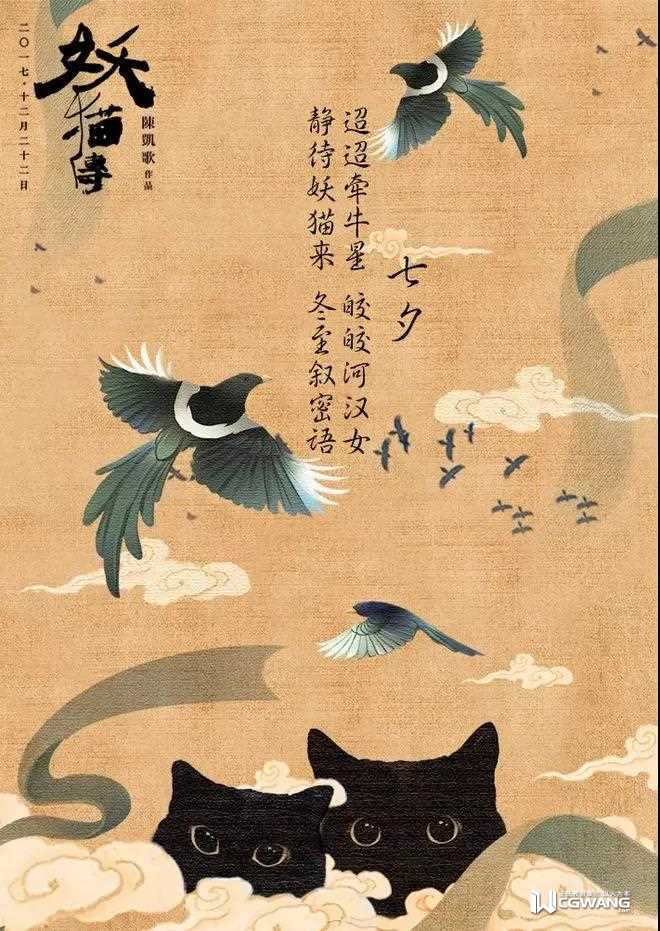 七夕
迢迢牵牛星 皎皎河汉女
静待妖猫来 冬至叙密语
陳凱歌 作品
妖猫傳
二〇一七·十二月二十二日
CGWANG